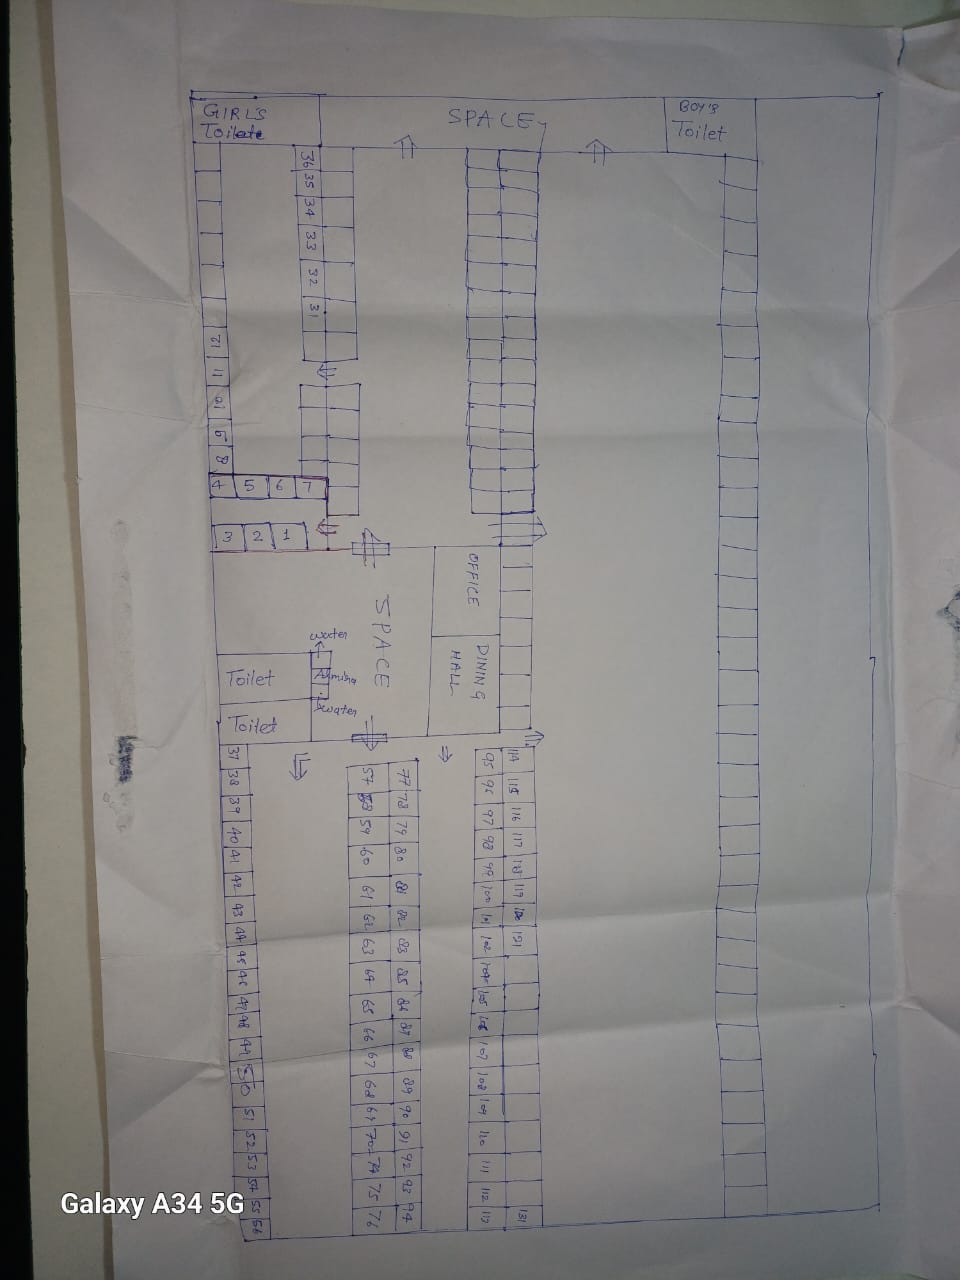 GIRL'S
Toilete
SPACE
BOY'S
Toilet
36 35 34 33 32 31
12 11 10 9 8
4 5 6 7
3 2 1
SPACE
OFFICE
DINING
HALL
water
Toilet
water
Toilet
37 38 39 40 41 42 43 44 45 46 47 48 49 50 51 52 53 54 55 56
57 58 59 60 61 62 63 64 65 66 67 68 69 70 74 75 76
77 78 79 80 81 82 83 85 86 87 88 89 90 91 92 93 94
95 96 97 98 99 100 101 102 104 105 106 107 108 109 110 111 112 113
114 115 116 117 118 119 120 121
131
Galaxy A34 5G